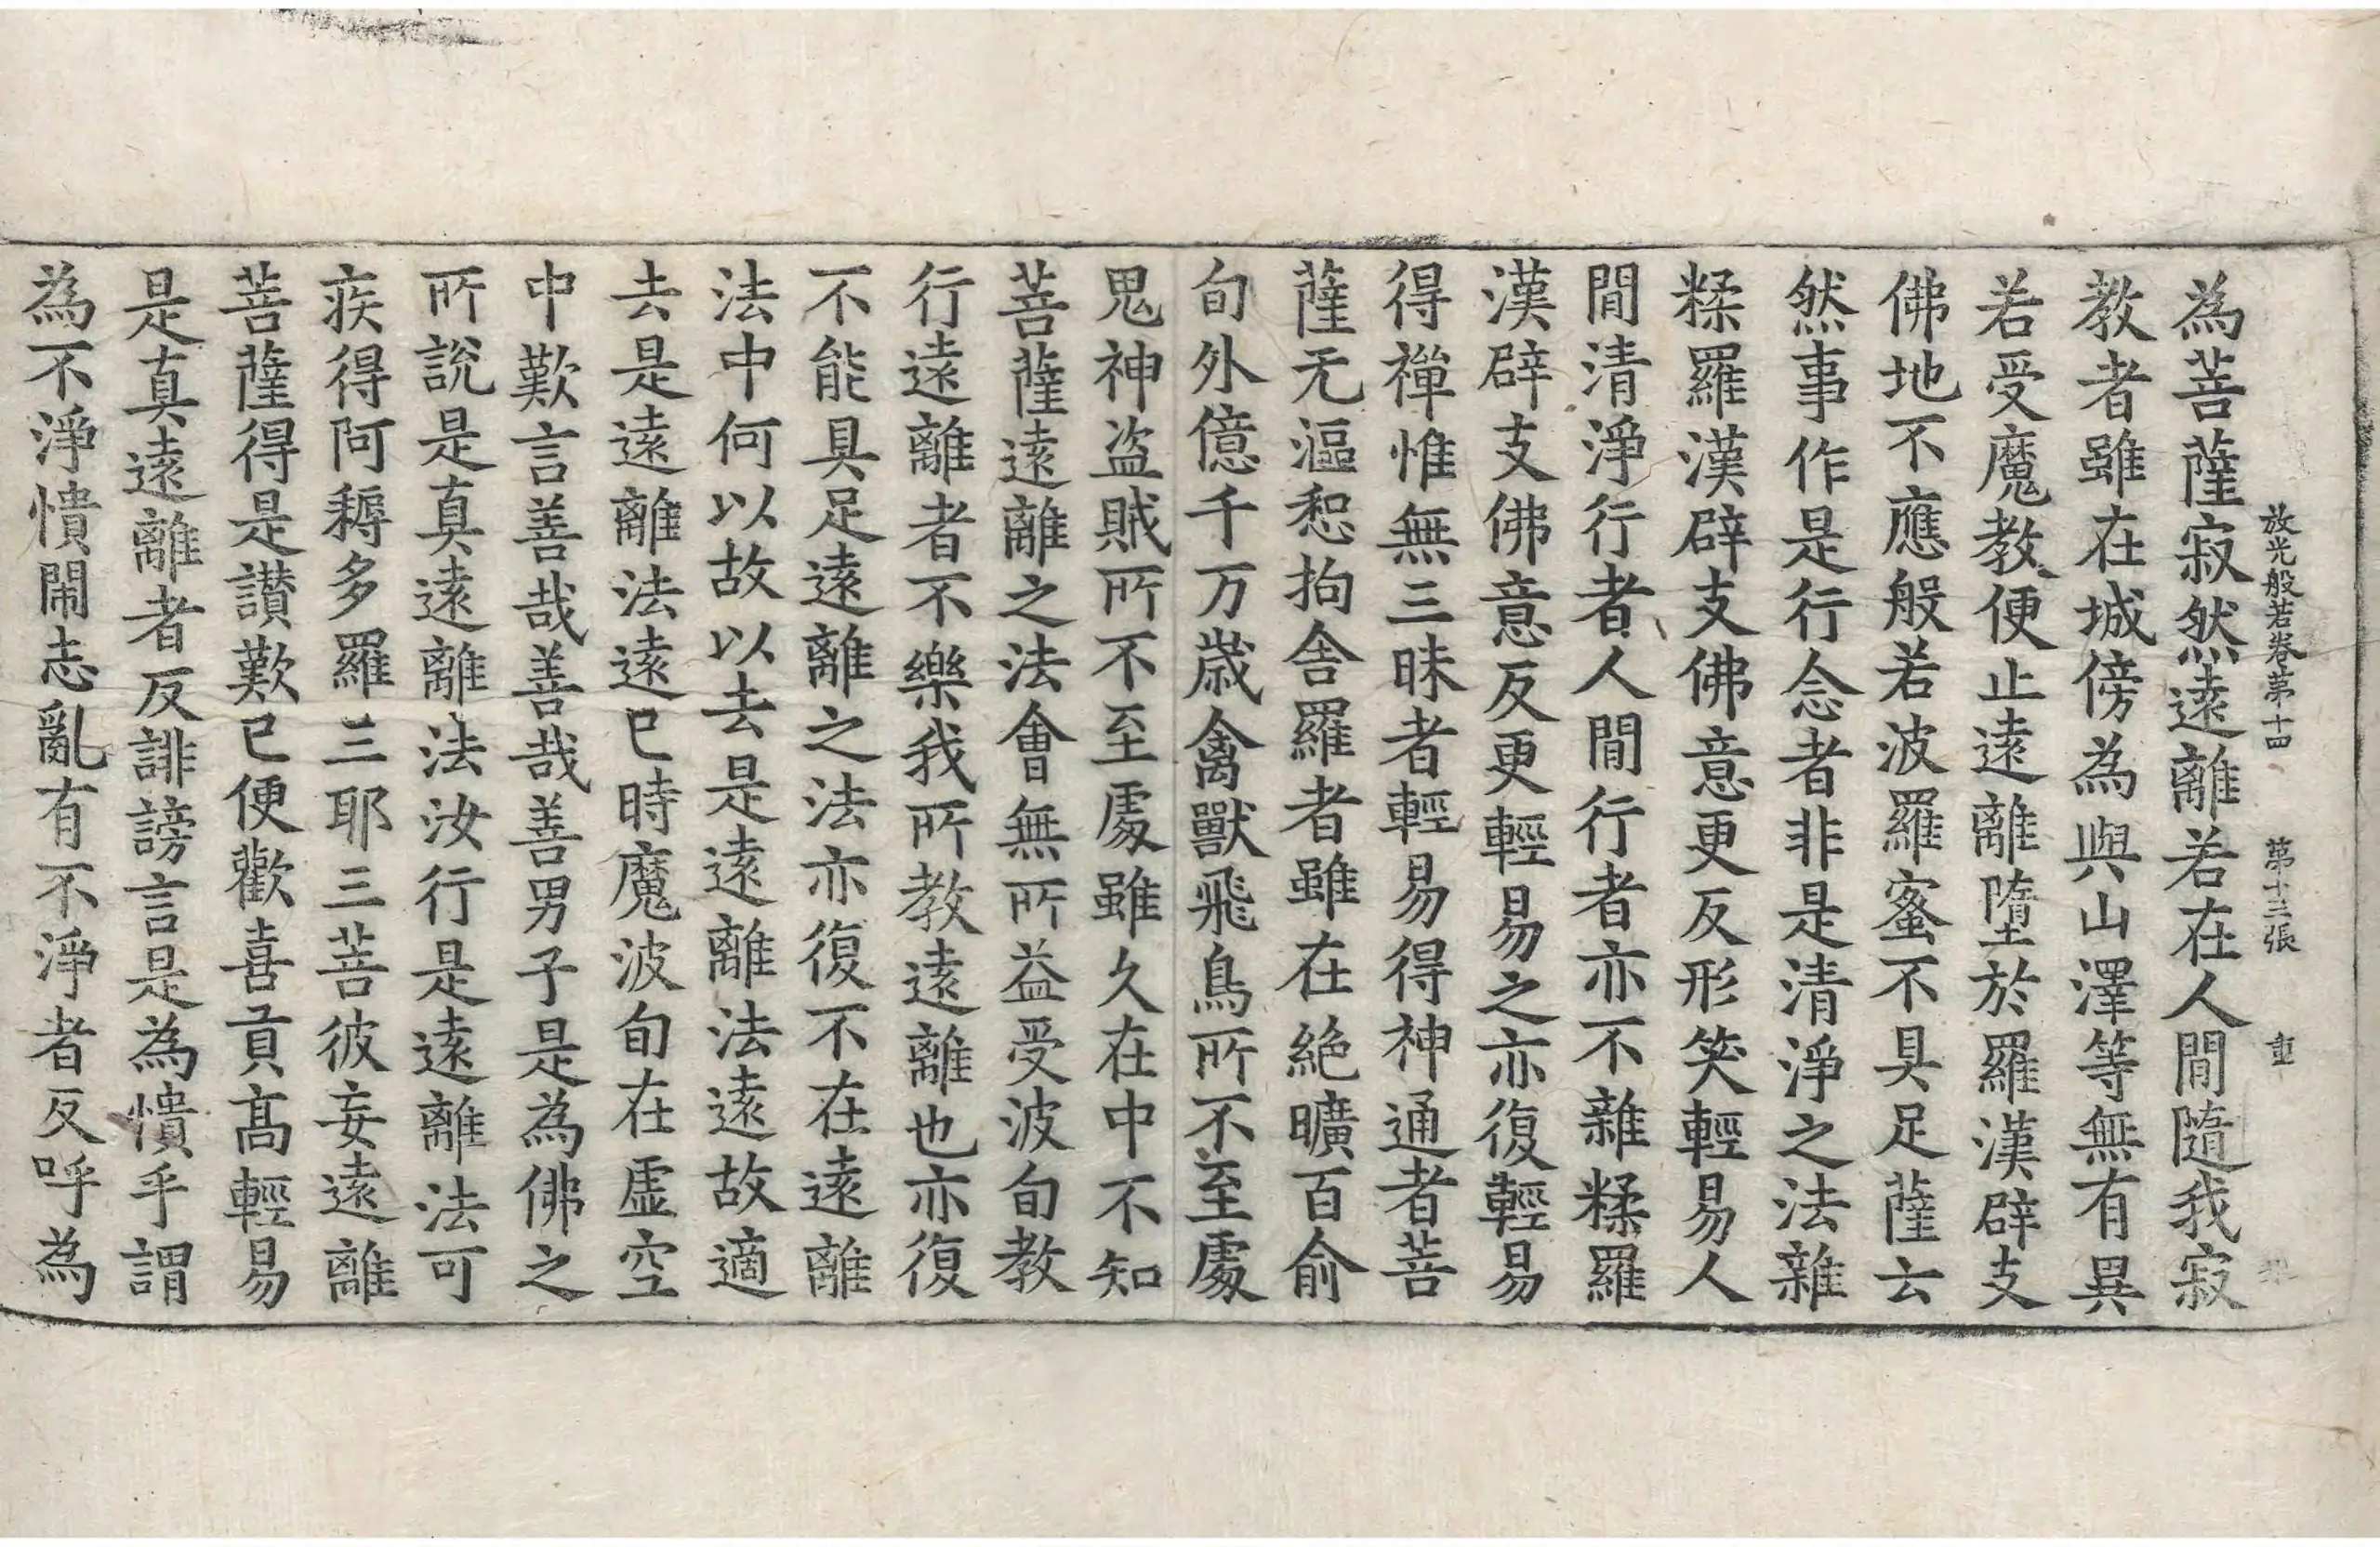 放光般若卷第十四　第十三張　重
為菩薩寂然遠離若在人間隨我寂
教者雖在城傍為與山澤等無有異
若受魔教便止遠離墮於羅漢辟支
佛地不應般若波羅蜜不具足薩云
然事作是行念者非是清淨之法雜
糅羅漢辟支佛意更反形笑輕易人
間清淨行者人間行者亦不雜糅羅
漢辟支佛意反更輕易之亦復輕易
得禪惟無三昧者輕易得神通者菩
薩无漚惒拘舍羅者雖在絕曠百俞
旬外億千万歲禽獸飛鳥所不至處
鬼神盜賊所不至處雖久在中不知
菩薩遠離之法會無所益受波旬教
行遠離者不樂我所教遠離也亦復
不能具足遠離之法亦復不在遠離
法中何以故以去是遠離法遠故適
去是遠離法遠已時魔波旬在虛空
中歎言善哉善哉善男子是為佛之
所說是真遠離法汝行是遠離法可
疾得阿耨多羅三耶三菩彼妄遠離
菩薩得是讚歎已便歡喜貢高輕易
是真遠離者反誹謗言是為憒乎謂
為不淨憒閙志亂有不淨者反呼為